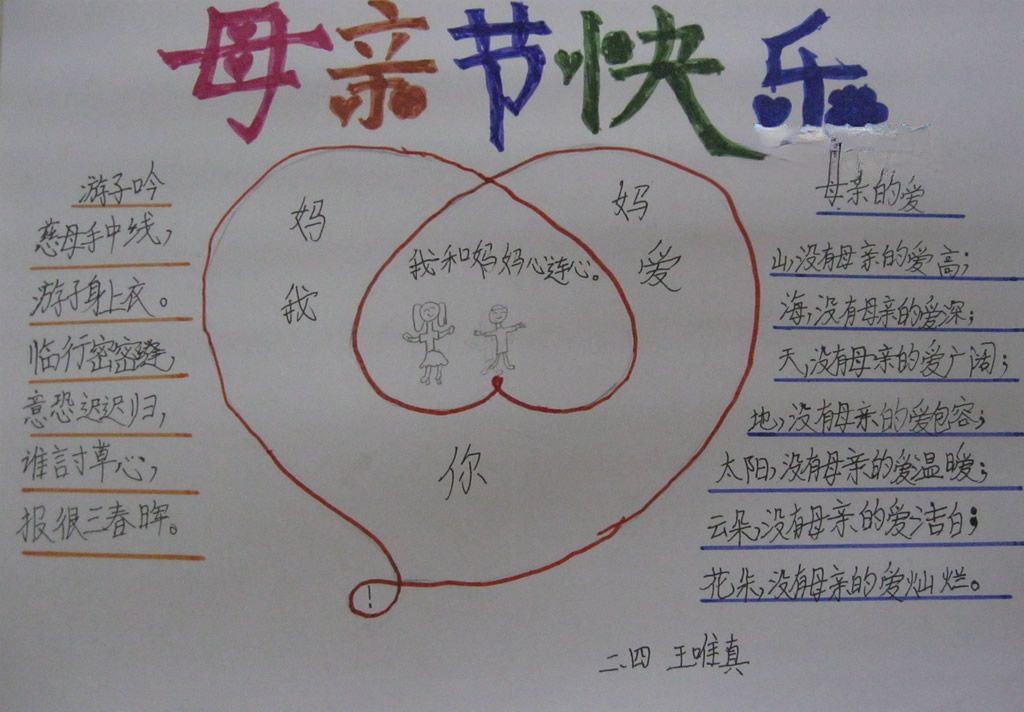 母亲节快乐
游子吟
慈母手中线，
游子身上衣。
临行密密缝，
意恐迟迟归，
谁討草心，
报很三春晖。
妈 妈
我 爱
你
！
我和妈妈心连心。
母亲的爱
山，没有母亲的爱高；
海，没有母亲的爱深；
天，没有母亲的爱广阔；
地，没有母亲的爱包容；
太阳，没有母亲的爱温暖；
云朵，没有母亲的爱洁白；
花朵，没有母亲的爱灿烂。
二、四 王唯真